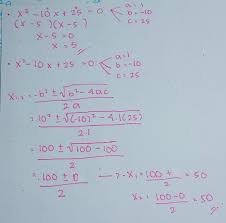 • x² - 10x + 25 = 0 a = 1
b = -10
c = 25
(x - 5)(x - 5)
x - 5 = 0
x = 5
• x² - 10x + 25 = 0 a = 1
b = -10
c = 25
X₁,₂ = -b² ± √b² - 4ac / 2a
= 10² ± √(-10)² - 4.1(25) / 2.1
= 100 ± √100 - 100 / 2
= 100 ± 0 / 2 → X₁ = 100 + / 2 = 50
X₂ = 100 - 0 / 2 = 50